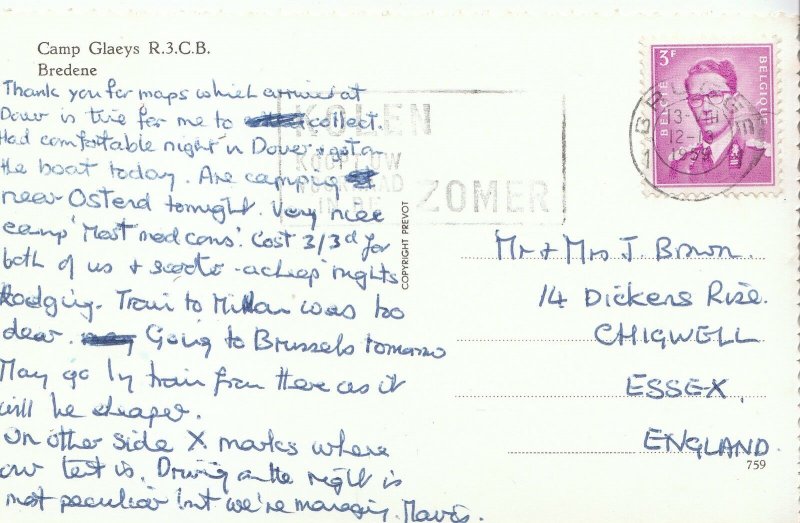 Camp Glaeys R.3.C.B.
Bredene
Thank you for maps which arrived at
Dover in time for me to collect.
Had comfortable night in Dover & got on
the boat today. Are camping
near Ostend tonight. Very nice
camp 'Most mod cons'. Cost 3/3d for
both of us & scooter - a cheap nights
lodging. Train to Milan was too
dear. Going to Brussels tomorrow
May go by train from there as it
will be cheaper.
On other side X marks where
our tent is. Driving on the right is
most peculiar but we're managing. Mavis.
COPYRIGHT PREVOT
KOLEN
KOOPT UW
IN DE
ZOMER
3F
BELGIË
BELGIQUE
BRUGGE
1959
Mr & Mrs J. Brown.
14 Dickens Rise.
CHIGWELL
ESSEX.
ENGLAND.
759